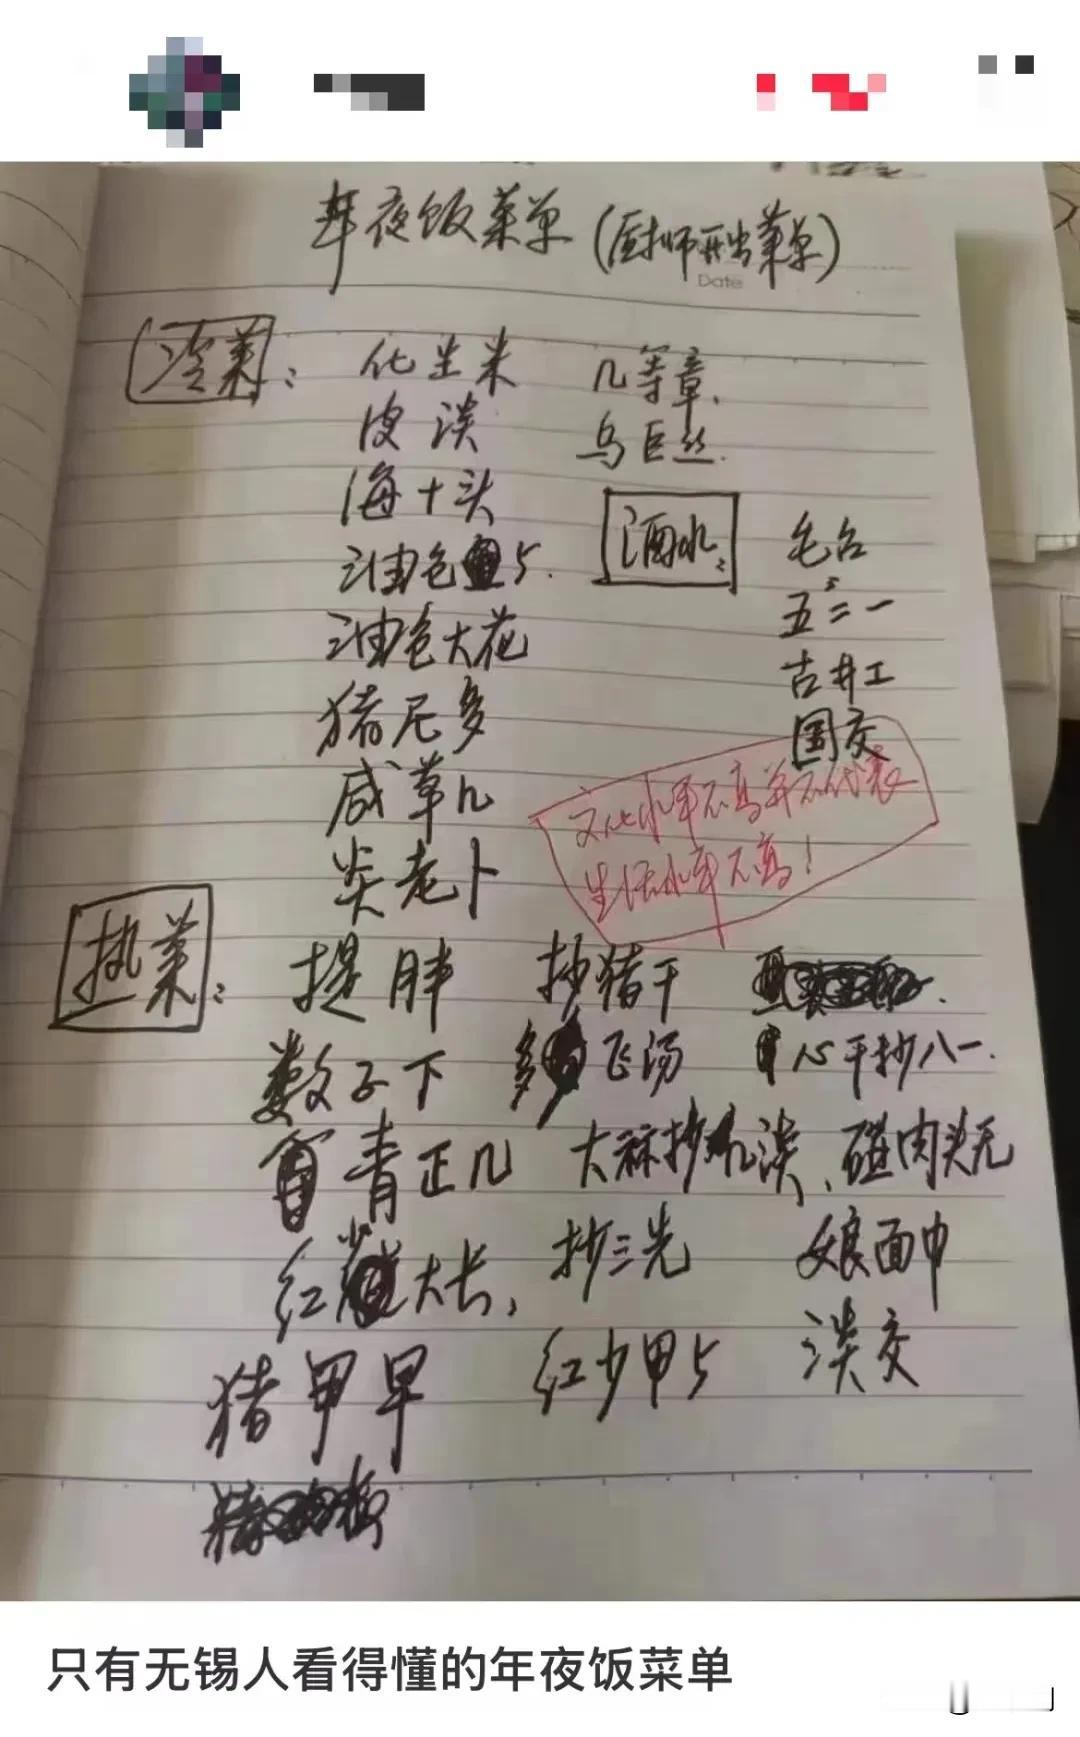 年夜饭菜单(厨师开出菜单)
Date
冷菜:
化生米
皮淡
海十头
油色5.
油色大花
猪尼多
咸革几
炎老卜
几等章.
乌巨丝.
酒水:
毛台
五二一
古井工
国交
文化水平不高并不代表
生活水平不高!
热菜:
提胖
数子下
青正几
红大长,
猪甲早
抄猪干
多飞汤
大麻抄几淡、
抄三先
红少甲5
心干抄八一.
碰肉头无
娘面巾
淡交
只有无锡人看得懂的年夜饭菜单